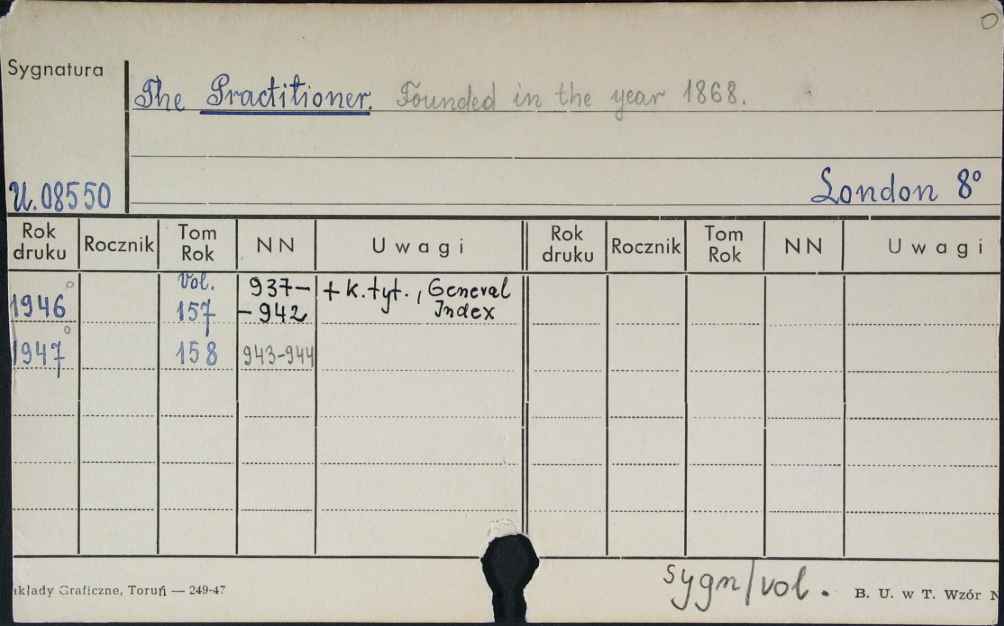 Sygnatura
The Practitioner. Founded in the year 1868.
U.08550
London 8°
Rok druku Rocznik Tom Rok NN Uwagi Rok druku Rocznik Tom Rok NN Uwagi
1946 Vol. 157 937-
-942 + k.tyt., General
Index
1947 158 943-944
sygn/vol.
kłady Graficzne, Toruń — 249-47
B. U. w T. Wzór N